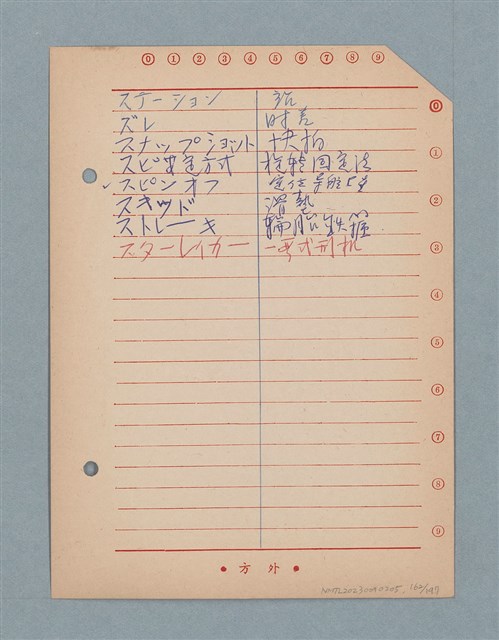 0 1 2 3 4 5 6 7 8 9
ステーション 站
ズレ 时差
スナップショット 快拍
スピ安定方式 旋转固定法
スピンオフ
スキッド 滑墊
ストレーキ 輪胎鉄箍
スターレイカー 一号式司机
0
1
2
3
4
5
6
7
8
9
• 方外 •